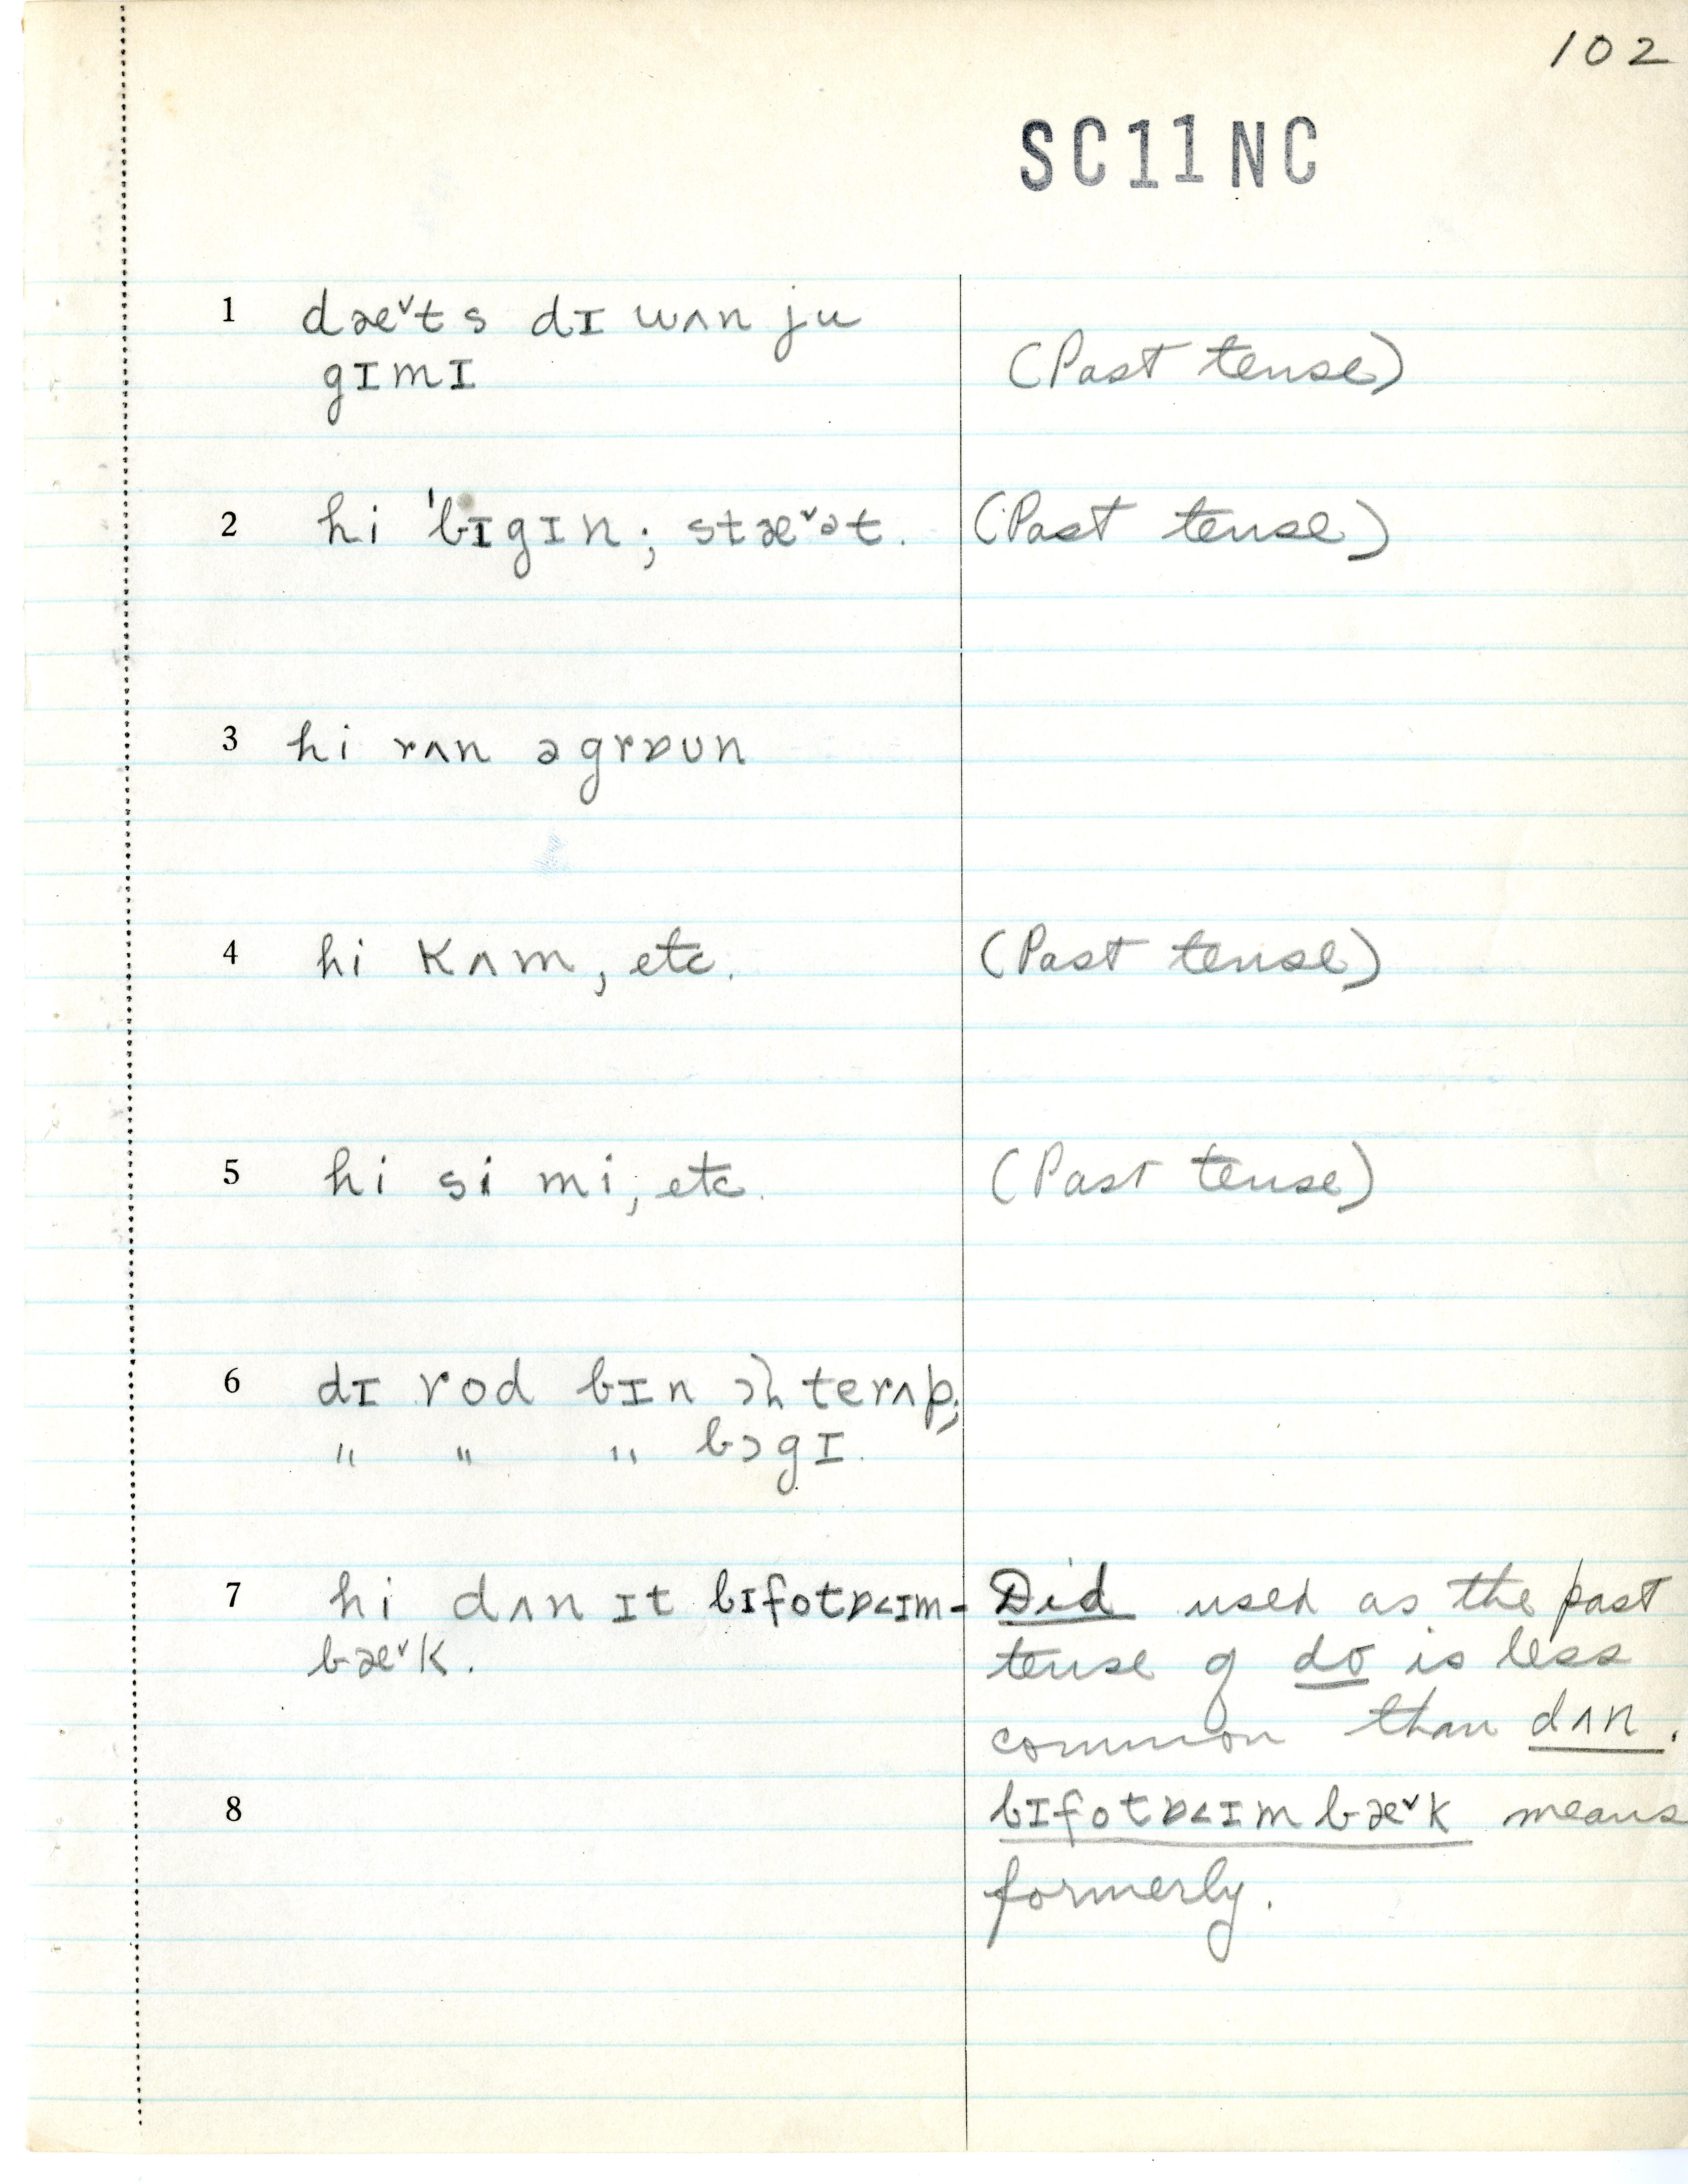 102
SC11NC
1 dæ˅ts dɪ wʌn ju
gɪmɪ (Past tense)
2 hi ˈbɪgɪn; stæ˅ət. (Past tense)
3 hi rʌn əgrɒun
4 hi kʌm, etc. (Past tense)
5 hi si mi, etc. (Past tense)
6 dɪ rod bɪn ɔl terʌp;
" " " bɔgɪ.
7 hi dʌn ɪt bɪfotɒ<ɪm- Did used as the past
bæ˅k. tense of do is less
common than dʌn.
8 bɪfotɒ<ɪmbæ˅k means
formerly.